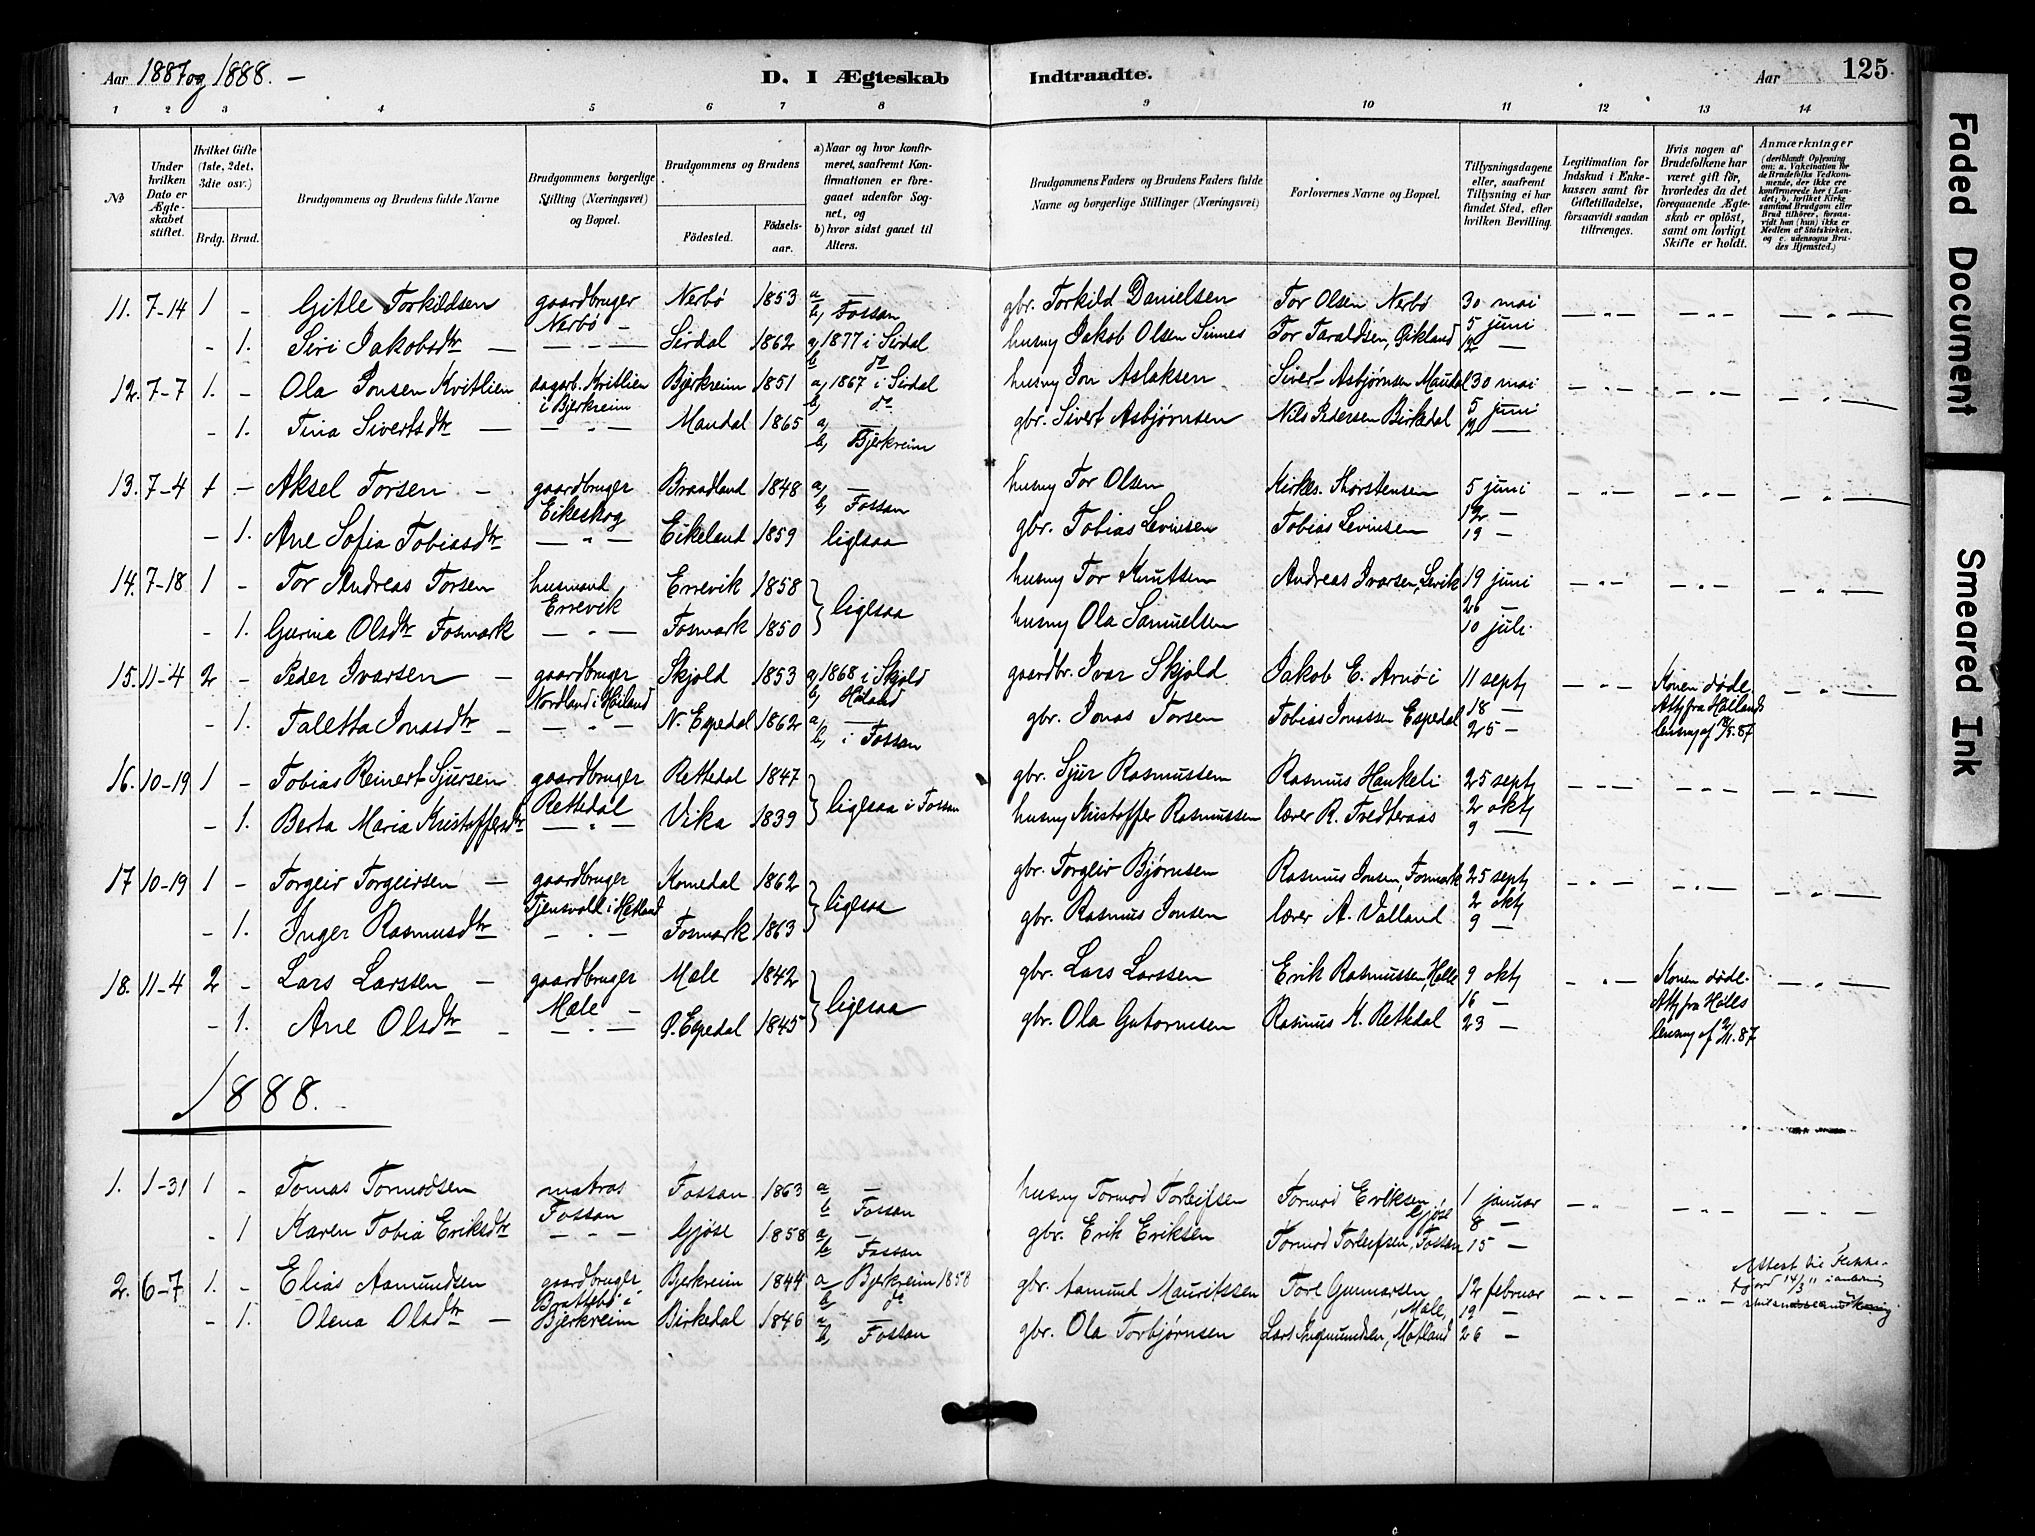 Aar 1887 og 1888. –
D. I Ægteskab Indtraadte.
Aar 125.
1 2 3 4 5 6 7 8 9 10 11 12 13 14
No
Under hvilken Dato er Ægteskabet stiftet.
Hvilket Gifte (1ste, 2det, 3die osv.)
Brdg. Brud.
Brudgommens og Brudens fulde Navne
Brudgommens borgerlige Stilling (Næringsvei) og Bopæl.
Brudgommens og Brudens
Födested.
Födselsaar.
a) Naar og hvor konfirmeret, saafremt Konfirmationen er foregaaet udenfor Sognet, og
b) hvor sidst gaaet til Alters.
Brudgommens Faders og Brudens Faders fulde Navne og borgerlige Stillinger (Næringsvei)
Forlovernes Navne og Bopæl.
Tillysningsdagene eller, saafremt Tillysning ei har fundet Sted, efter hvilken Bevilling.
Legitimation for Indskud i Enkekassen samt for Giftetilladelse, forsaavidt saadan tiltrænges.
Hvis nogen af Brudefolkene har været gift för, hvorledes da det foregaaende Ægteskab er oplöst, samt om lovligt Skifte er holdt.
Anmærkninger
(deriblandt Oplysning om: a. Vakcination för de Brudefolks Vedkommende, der ikke ere konfirmerede her i Landet; b. hvilket Kirkesamfund Brudgom eller Brud tilhörer, forsaavidt han (hun) ikke er Medlem af Statskirken, og c. udensogns Brudes Hjemsted.)
11. 7-14 1 - Gitle Torkildsen gaardbruger Nerbö 1853 a — gbr. Torkild Danielsen Tor Olsen Nerbö 30 mai
Nerbö - b, Fossan 5 juni
- 1. Siri Jakobsdtr — Sirdal 1862 a, 1877 i Sirdal husm Jakob Olsen Sinnes Tor Taraldsen, Eikland 12 —
b do
12. 7-7 1. - Ola Jonsen Kvitlien dagarb. Kvitlien Bjerkreim 1851 a, 1867 i Sirdal husm Jon Aslaksen Sivert Asbjørnsen Maudal 30 mai
i Bjerkreim b, do 5 juni
- 1. Tina Sivertsdtr — Maudal 1865 a, — gbr. Sivert Asbjørnsen Nils Pedersen Birkedal 12 —
b, Bjerkreim
13. 7-4 1 - Aksel Torsen - gaardbruger Braadland 1848 a, — husm Tor Olsen Kirkes. Thorstensen 5 juni
Eikeskog b, Fossan 12 —
- 1. Ane Sofia Tobiasdtr — " — Eikeland 1859 ligesaa gbr. Tobias Levinsen Tobias Levinsen 19 —
14. 7-18 1 - Tor Andreas Torsen husmand Errevik 1858 husm Tor Knutsen Andreas Ivarsen, Levik 19 juni
Errevik ligesaa 26 —
- 1. Gurina Olsdtr Fosmark — " — Fosmark 1850 husm Ola Samuelsen 10 juli
15. 11-4 2 - Peder Ivarsen — gaardbruger Skjold 1853 a, 1868 i Skjold gaardbr. Ivar Skjold Jakob E. Arnö i 11 sept Konen döde.
Nordland i Höiland b, Höiland 18 — Att fra Höilands
- 1. Taletta Jonasdtr - — " — N. Espedal 1862 a, — gbr. Jonas Torsen Tobias Jonassen Espedal 25 —
b, i Fossan
16. 10-19 1 - Tobias Reinert Sjursen gaardbruger Rettedal 1847 gbr. Sjur Rasmussen Rasmus Haukeli 25 sept
Rettedal ligesaa i Fossan 2 okt
- 1. Berta Maria Kristoffersdtr — " — Vika 1839 husm Kristoffer Rasmussen lærer R. Tredteraas 9 —
17 10-19 1 - Torgeir Torgeirsen — gaardbruger Komedal 1862 gbr. Torgeir Bjørnsen Rasmus Jonsen, Fosmark 25 sept
Tjensvoll i Hetland ligesaa 2 okt
- 1. Inger Rasmusdtr - " — Fosmark 1863 gbr. Rasmus Jonsen lærer A. Valland 9 —
18. 11-4 2 - Lars Larssen — gaardbruger Mæle 1842 gbr. Lars Larssen Erik Rasmussen, Helle 9 okt Konen döde.
Mæle - ligesaa 16 — Att fra Höles
- 1. Ane Olsdtr - — " — Espedal 1845 gbr. Ola Gutormsen Rasmus K. Rettedal 23 —
1888.
1. 1-31 1 - Tomas Tormodsen matros Fossan 1863 a — husm Tormod Torleifsen Tormod Eriksen 1 januar
Fossan b Fossan Gjöse 8 —
- 1 Karen Tobia Eriksdtr — " — Gjöse 1858 a, — gbr. Erik Eriksen Tormod Torleifsen, Fossan 15 —
b Fossan
2. 6-7 1. - Elias Aamundsen gaardbruger Bjerkreim 1844 a Bjerkreim 1858 gbr. Aamund Mauritssen Tore Gunnarsen 12 februar
Brattebö i b do Mæle, 19 —
- 1. Olena Olsdtr — Bjerkreim Birkedal 1846 a — gbr. Ola Torbjørnsen Lars Ingemundsen, Motland 26 —
b Fossan
Faded Document
Smeared Ink